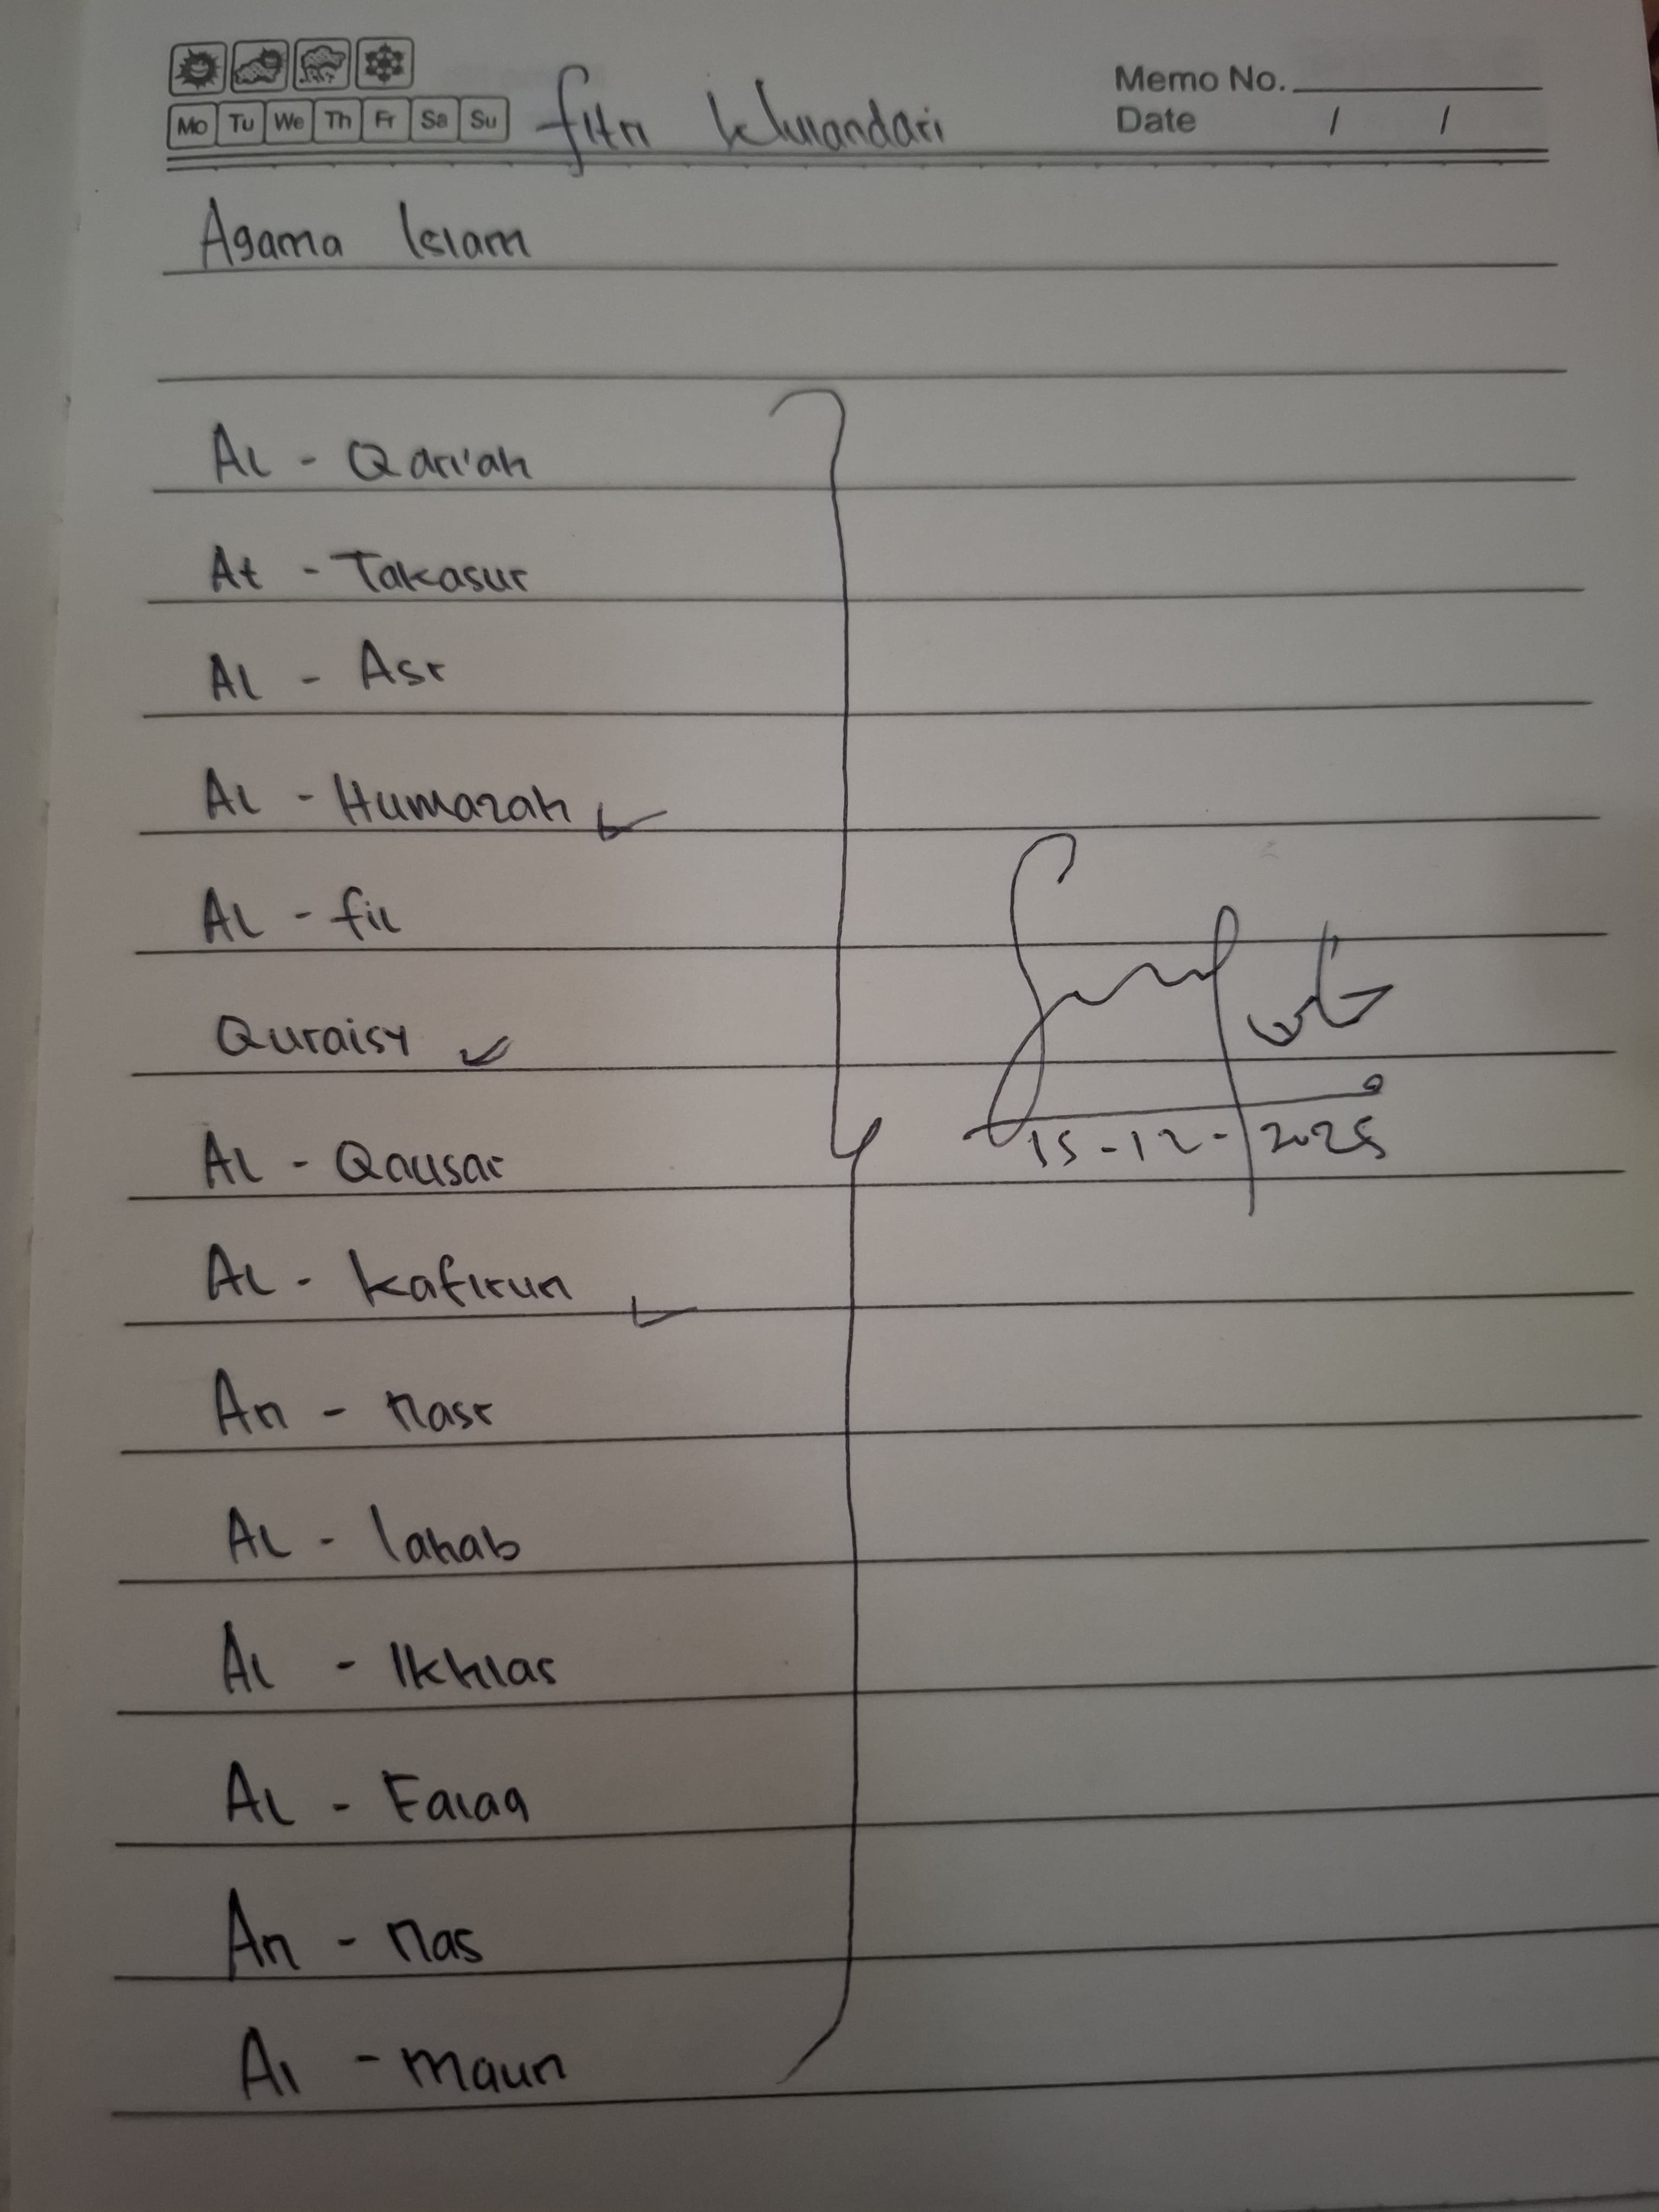 Memo No.
Mo Tu We Th Fr Sa Su
Fitri Wulandari
Date / /
Agama Islam
Al - Qari'ah
At - Takasur
Al - Asr
Al - Humazah
Al - fil
Quraisy
Al - Qausar
15-12-2025
Al - kafirun
An - nasr
Al - lahab
Al - Ikhlas
Al - Falaq
An - nas
Al - maun